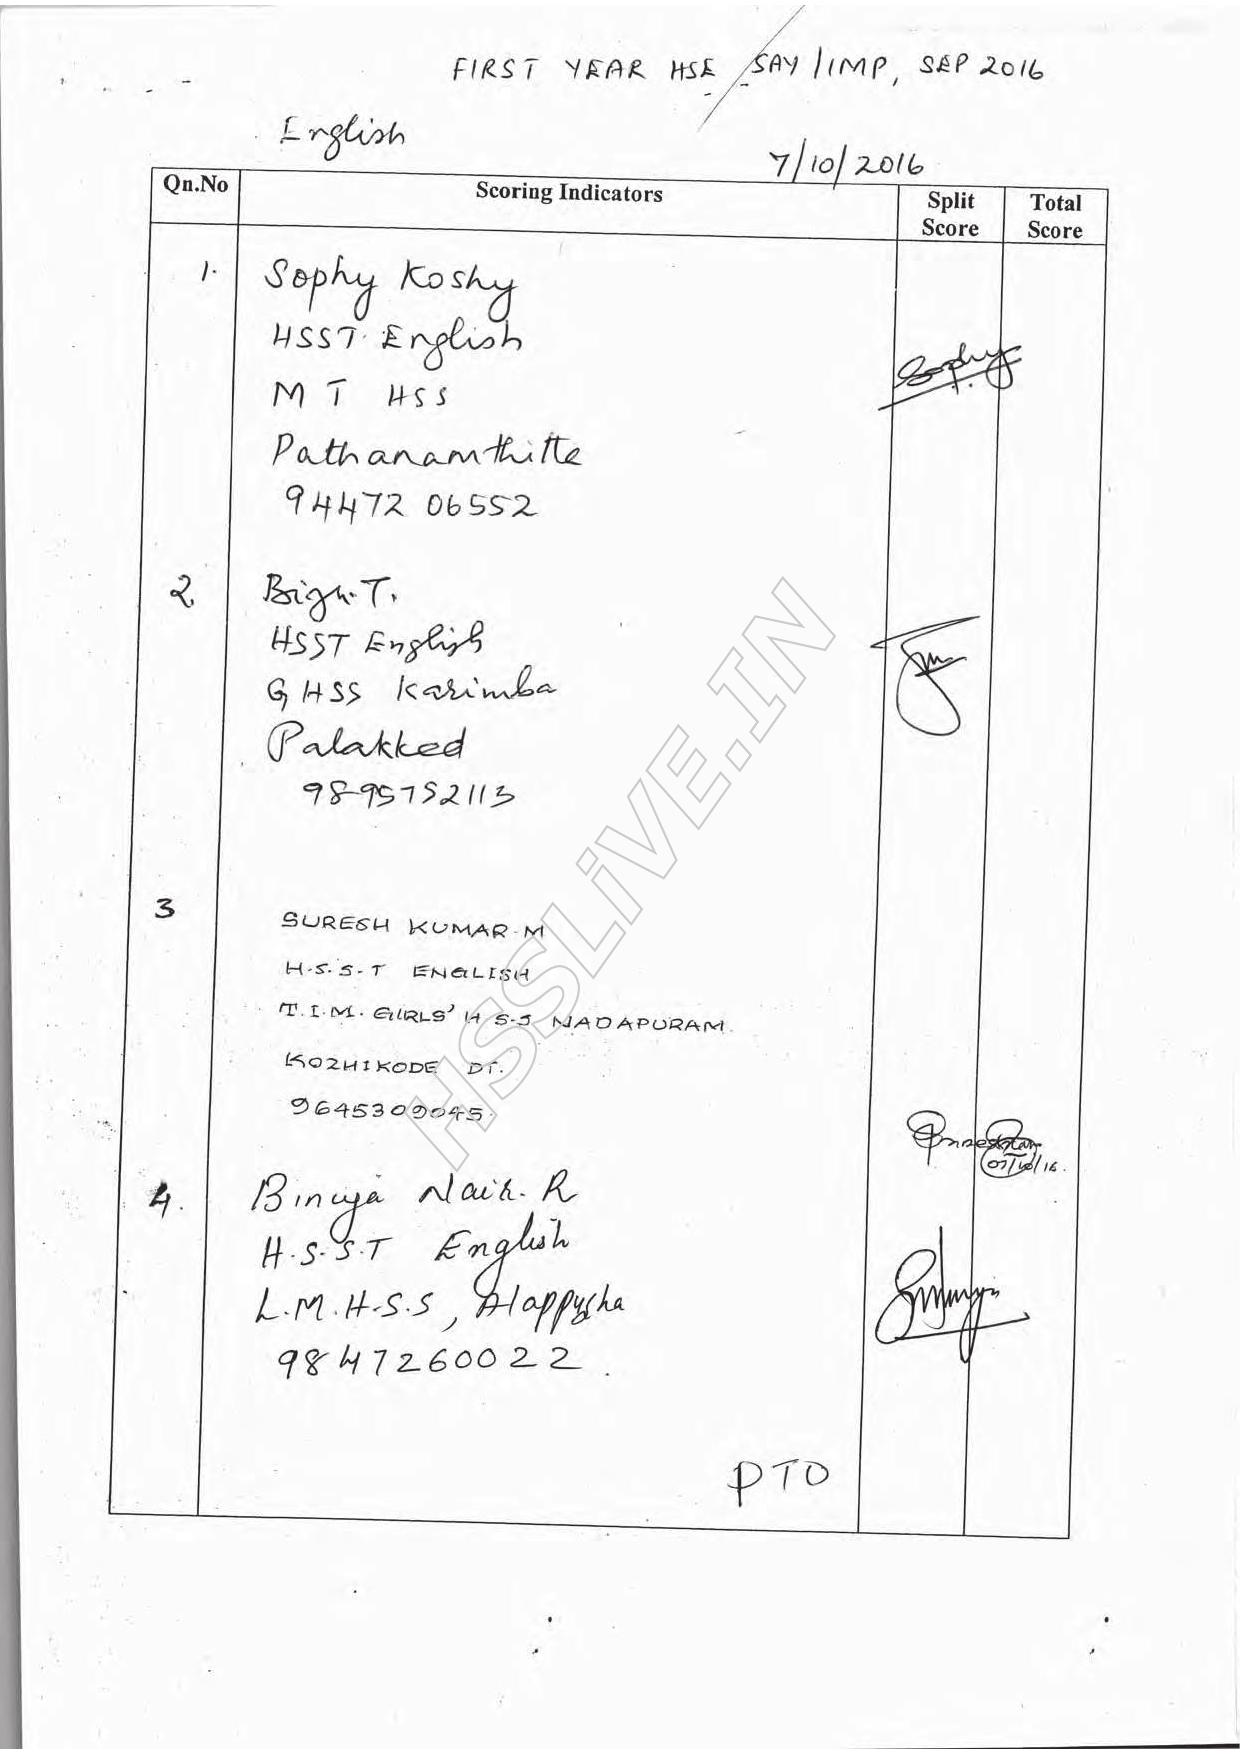 FIRST YEAR HSE SAY/IMP, SEP 2016
English
7/10/2016
Qn.No Scoring Indicators Split Score Total Score
1. Sophy Koshy
HSST English
M T HSS
Pathanamthitta
94472 06552
Sophy
2. Biju.T.
HSST English
GHSS Karimba
Palakkad
9895752113
3 SURESH KUMAR.M
H.S.S.T ENGLISH
T.I.M. GIRLS' H.S.S NADAPURAM
KOZHIKODE DT.
9645309045
07/10/16.
4. Binuja Nair. R
H.S.S.T English
L.M.H.S.S, Alappuzha
9847260022.
PTO
HSSLiVE.IN